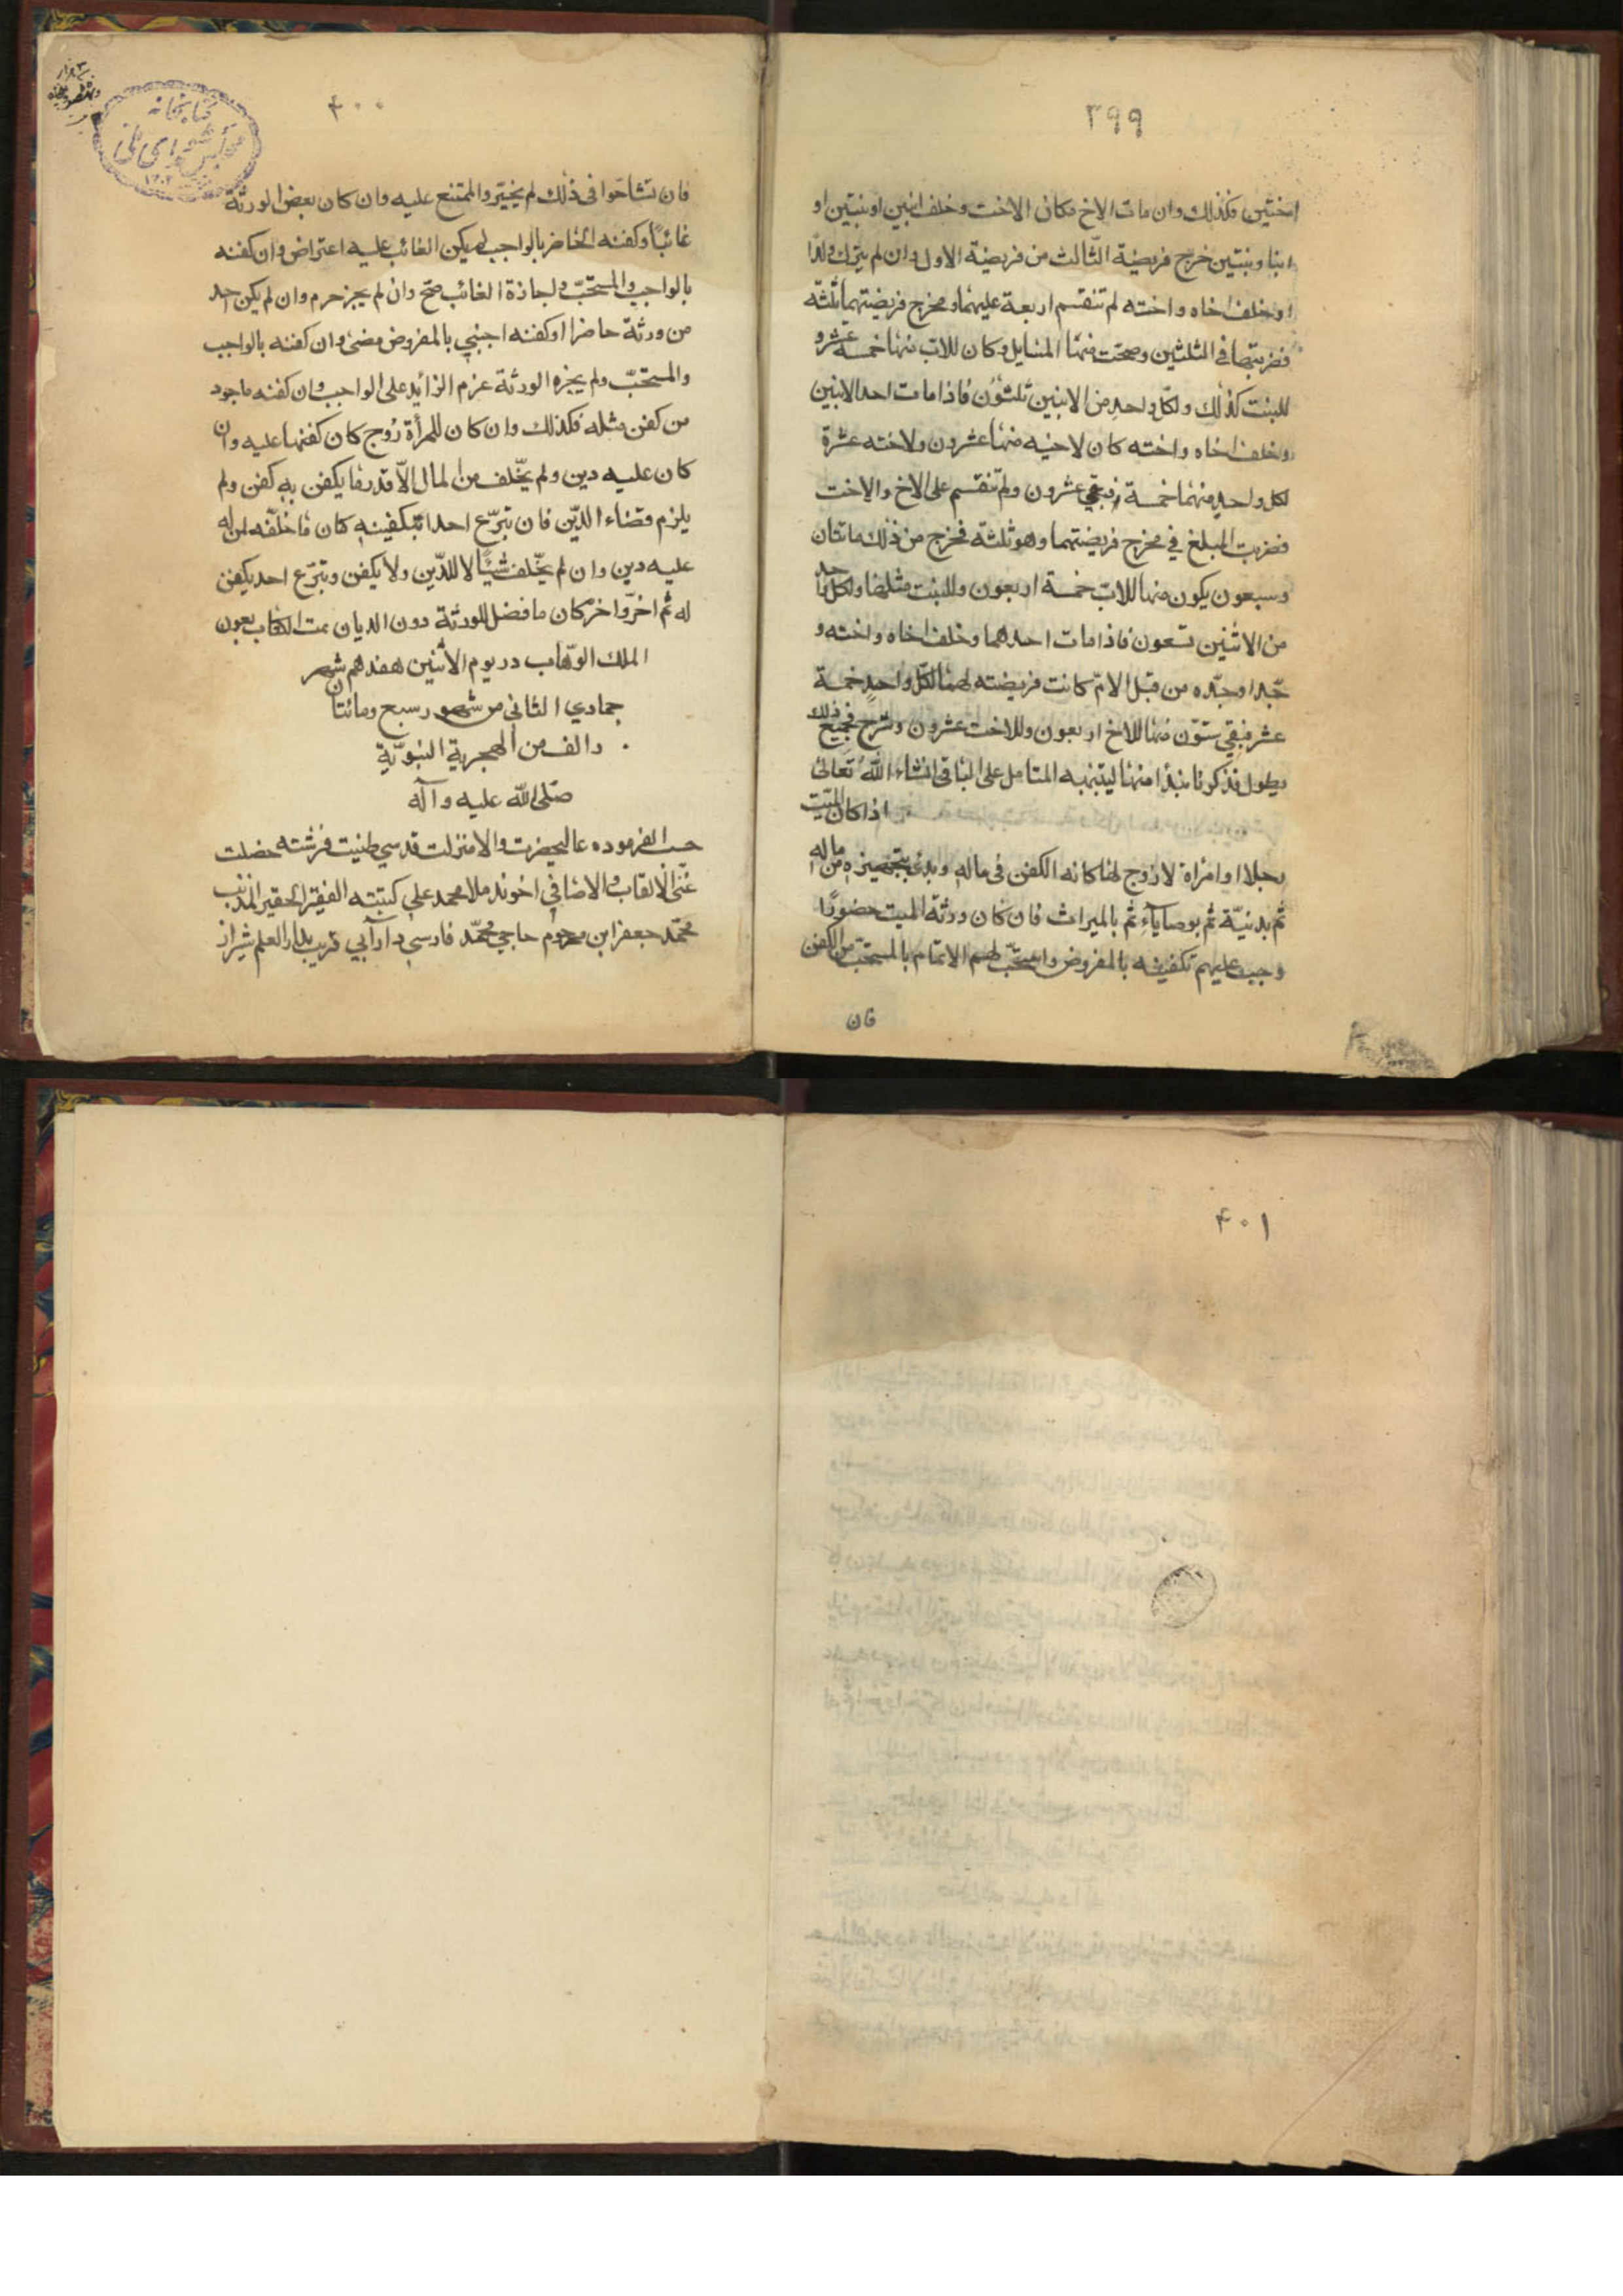 ۳۹۹
اختين فكذلك وان مات الاخ مكان الاخت وخلف ابنين او بنتين او
ابنا وبنتين خرج فريضة الثالث من فريضة الاول وان لم يترك ولدا
وخلف اخاه واخته لم تنقسم اربعة عليهما ومخرج فريضتهما ثلثه
فضربتها في الثلثين وصحت منها المسايل وكان للاب منها خمسة عشر و
للبنت كذلك ولكل واحد من الابنين ثلثون فاذا مات احد الابنين
وخلف اخاه واخته كان لاخيه منها عشرون ولاخته عشرة
لكل واحد منهما خمسة فبقي عشرون ولم تنقسم على الاخ والاخت
فضربت المبلغ في مخرج فريضتهما وهو ثلثه فخرج من ذلك مائتان
وسبعون يكون منها للاب خمسة اربعون وللبنت مثلها ولكل واحد
من الاثنين تسعون فاذا مات احدهما وخلف اخاه واخته و
جدا وجده من قبل الام كانت فريضته لهما لكل واحد خمسة
عشر فبقي ستون منها للاخ اربعون وللاخت عشرون وشرح جميع ذلك
يطول فذكرنا نبذا منها ليتنبه المتامل على الباقي انشاء الله تعالى
اذا كان الميت
رجلا او امراة لا زوج لها كانه الكفن في ماله وبدئ بتجهيزه من ماله
ثم بدنيّة ثم بوصاياء ثم بالميراث فان كان ورثة الميت حضورا
وجب عليهم تكفينه بالمفروض واستحب لهم الاتمام بالمستحب من الكفن
فان
۴۰۰
كتابخانه
مجلس شوراى ملى
فان تشاحوا في ذلك لم يخيّر والممتنع عليه وان كان بعض الورثة
غائبا وكفنه الحاضر بالواجب لم يكن الغائب عليه اعتراض وان كفنه
بالواجب والمستحب ولجازة الغائب صح وان لم يجز حرم وان لم يكن احد
من ورثة حاضرا وكفنه اجنبي بالمفروض مضى وان كفنه بالواجب
والمستحب ولم يجزه الورثة عزم الزائد على الواجب وان كفنه باجود
من كفن مثله فكذلك وان كان للمرأة زوج كان كفنها عليه وان
كان عليه دين ولم يخلف من المال الا قدر ما يكفن به كفن ولم
يلزم قضاء الدين فان تبرع احد بتكفينه كان ما خلفه لمن له
عليه دين وان لم يخلف شيئا لا للدين ولا يكفن وتبرع احد يكفن
له ثم اخر واخر كان ما فضل للورثة دون الديان تمت الكتاب بعون
الملك الوهاب در يوم الاثنين هفدهم شهر
جمادي الثاني من شهور سبع ومائتان
والف من الهجرية النبوية
صلى الله عليه وآله
حسب الفرموده عاليحضرت والا منزلت قدسي طنيت فرشته خصلت
غنّى الالقاب والاضافي اخوند ملا محمد علي كتبته الفقير الحقير المذنب
محمد جعفر ابن مرحوم حاجي محمد فارسي دارآبي قريب بدار العلم شيراز
۴۰۱